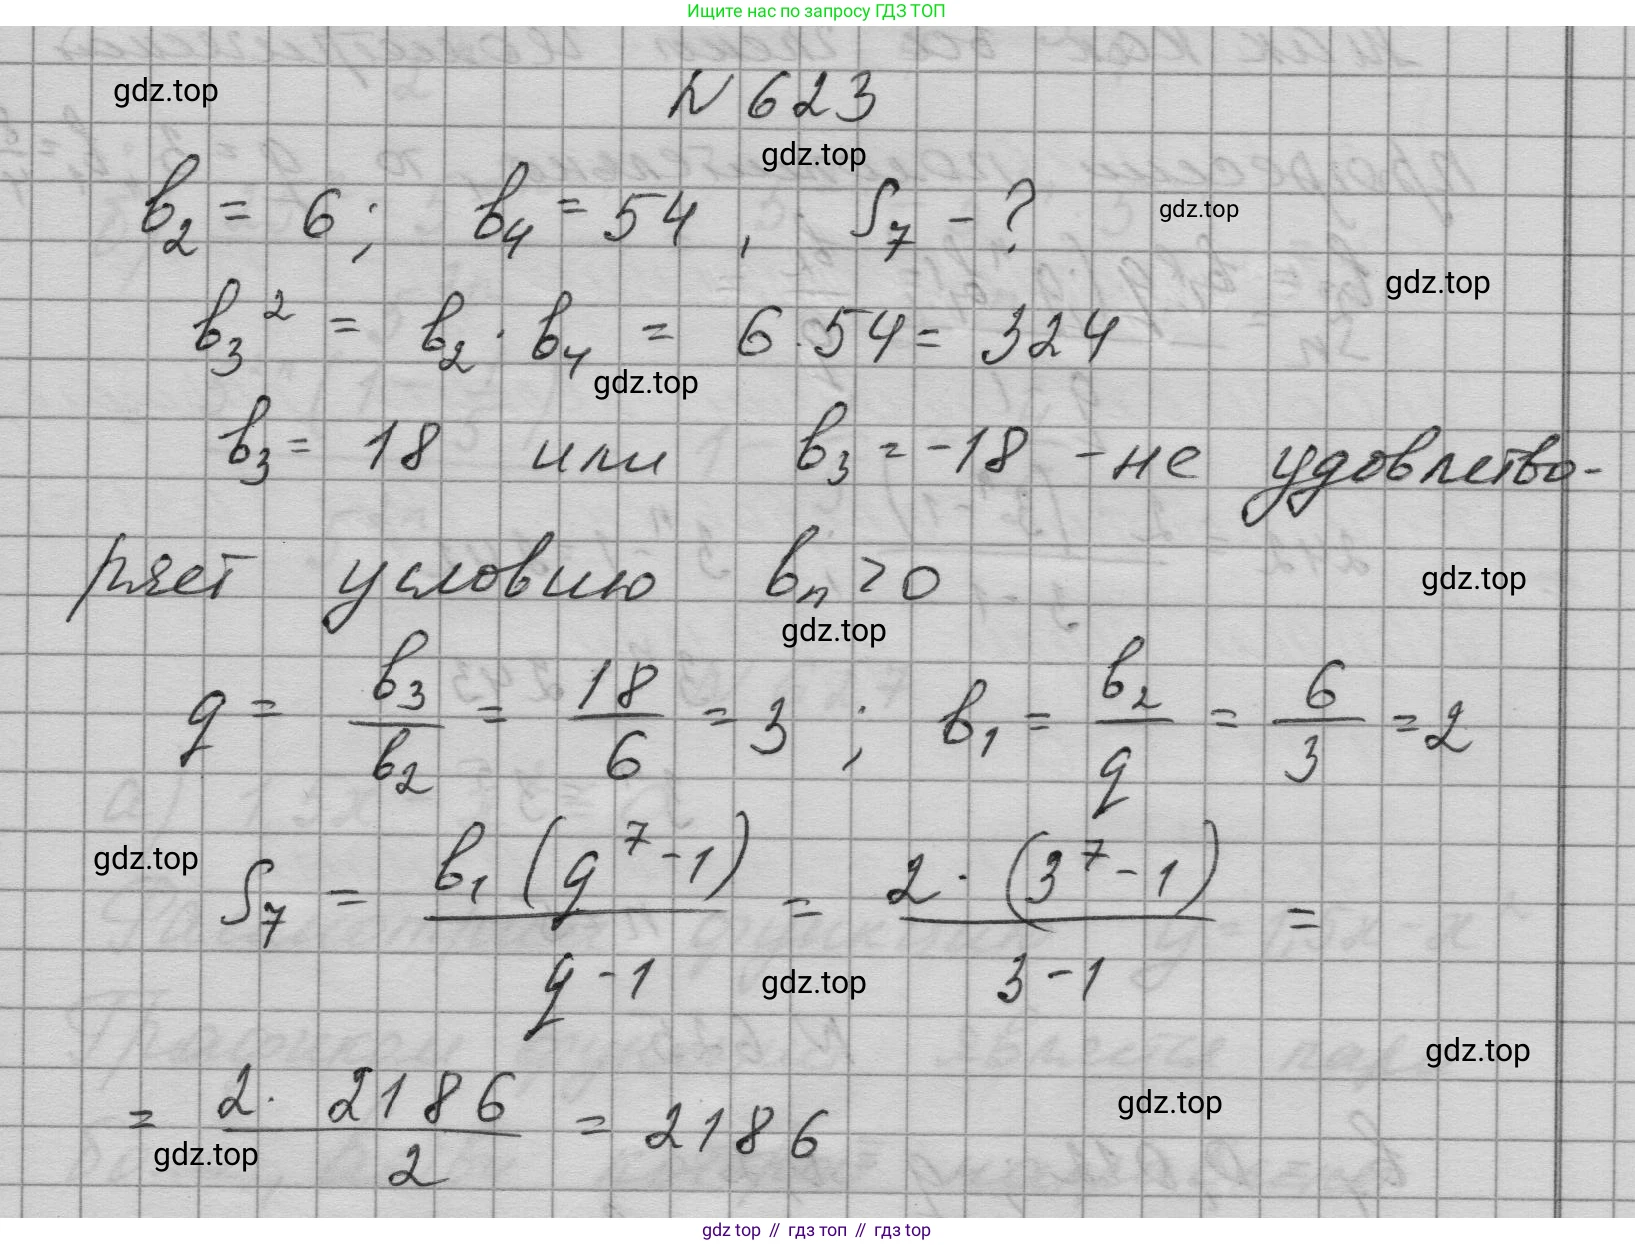 Ищите нас по запросу ГДЗ ТОП
gdz.top
N 623
gdz.top
b₂ = 6; b₄ = 54, S₇ - ?
gdz.top
gdz.top
b₃² = b₂ · b₄ = 6 · 54 = 324
gdz.top
b₃ = 18 или b₃ = -18 - не удовлетво-
ряет условию bₙ > 0
gdz.top
gdz.top
q = b₃/b₂ = 18/6 = 3; b₁ = b₂/q = 6/3 = 2
gdz.top
S₇ = b₁(q⁷-1)/q-1 = 2·(3⁷-1)/3-1 =
gdz.top
gdz.top
= 2·2186/2 = 2186
gdz.top
gdz.top
gdz top // гдз топ // гдз top